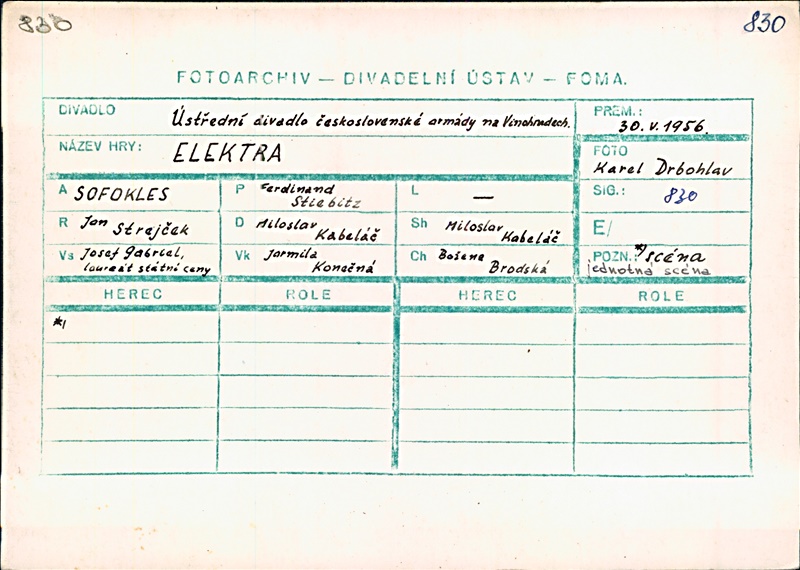 830 830
FOTOARCHIV — DIVADELNÍ ÚSTAV — FOMA.
DIVADLO Ústřední divadlo československé armády na Vinohradech. PREM.: 30. V. 1956.
NÁZEV HRY: ELEKTRA FOTO Karel Drbohlav
A SOFOKLES P Ferdinand Stiebitz L — SIG.: 830
R Jan Strejček D Miloslav Kabeláč Sh Miloslav Kabeláč E/
Vs Josef Gabriel, laureát státní ceny Vk Jarmila Konečná Ch Božena Brodská POZN.: *) scéna
jednotná scéna
HEREC ROLE HEREC ROLE
*)